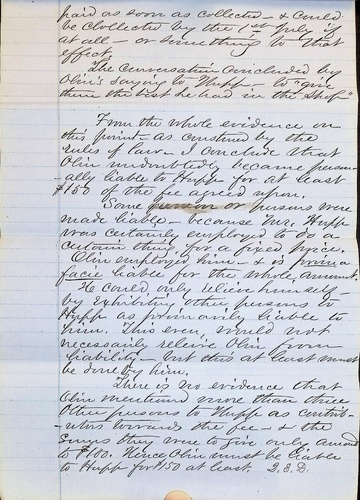 paid as soon as collected - & could
be collected by the 1st July if
at all - or something to that
effect.
The conversation concluded by
Olin's saying to Hupp - to "give
them the best he had in the shop"
From the whole evidence on
this point - as construed by the
rules of law - I conclude that
Olin undoubtedly became person-
ally liable to Hupp for at least
$150 of the fee agreed upon.
Some person or persons were
made liable - because Hupp
was certainly employed to do a
certain thing for a fixed price.
Olin employed him - & is prima
facie liable for the whole amount.
He could only relieve himself -
by exhibiting other persons to
Hupp as primarily liable to
him. This even, would not
necessarily relieve Olin from
liability - but this at least must
be done by him.
There is no evidence that
Olin mentioned more than three
other persons to Hupp as contrib-
utors towards the fee - & the
sums they were to give only amount
to $100. Hence Olin must be liable
to Hupp for $150 at least. Q.E.D.